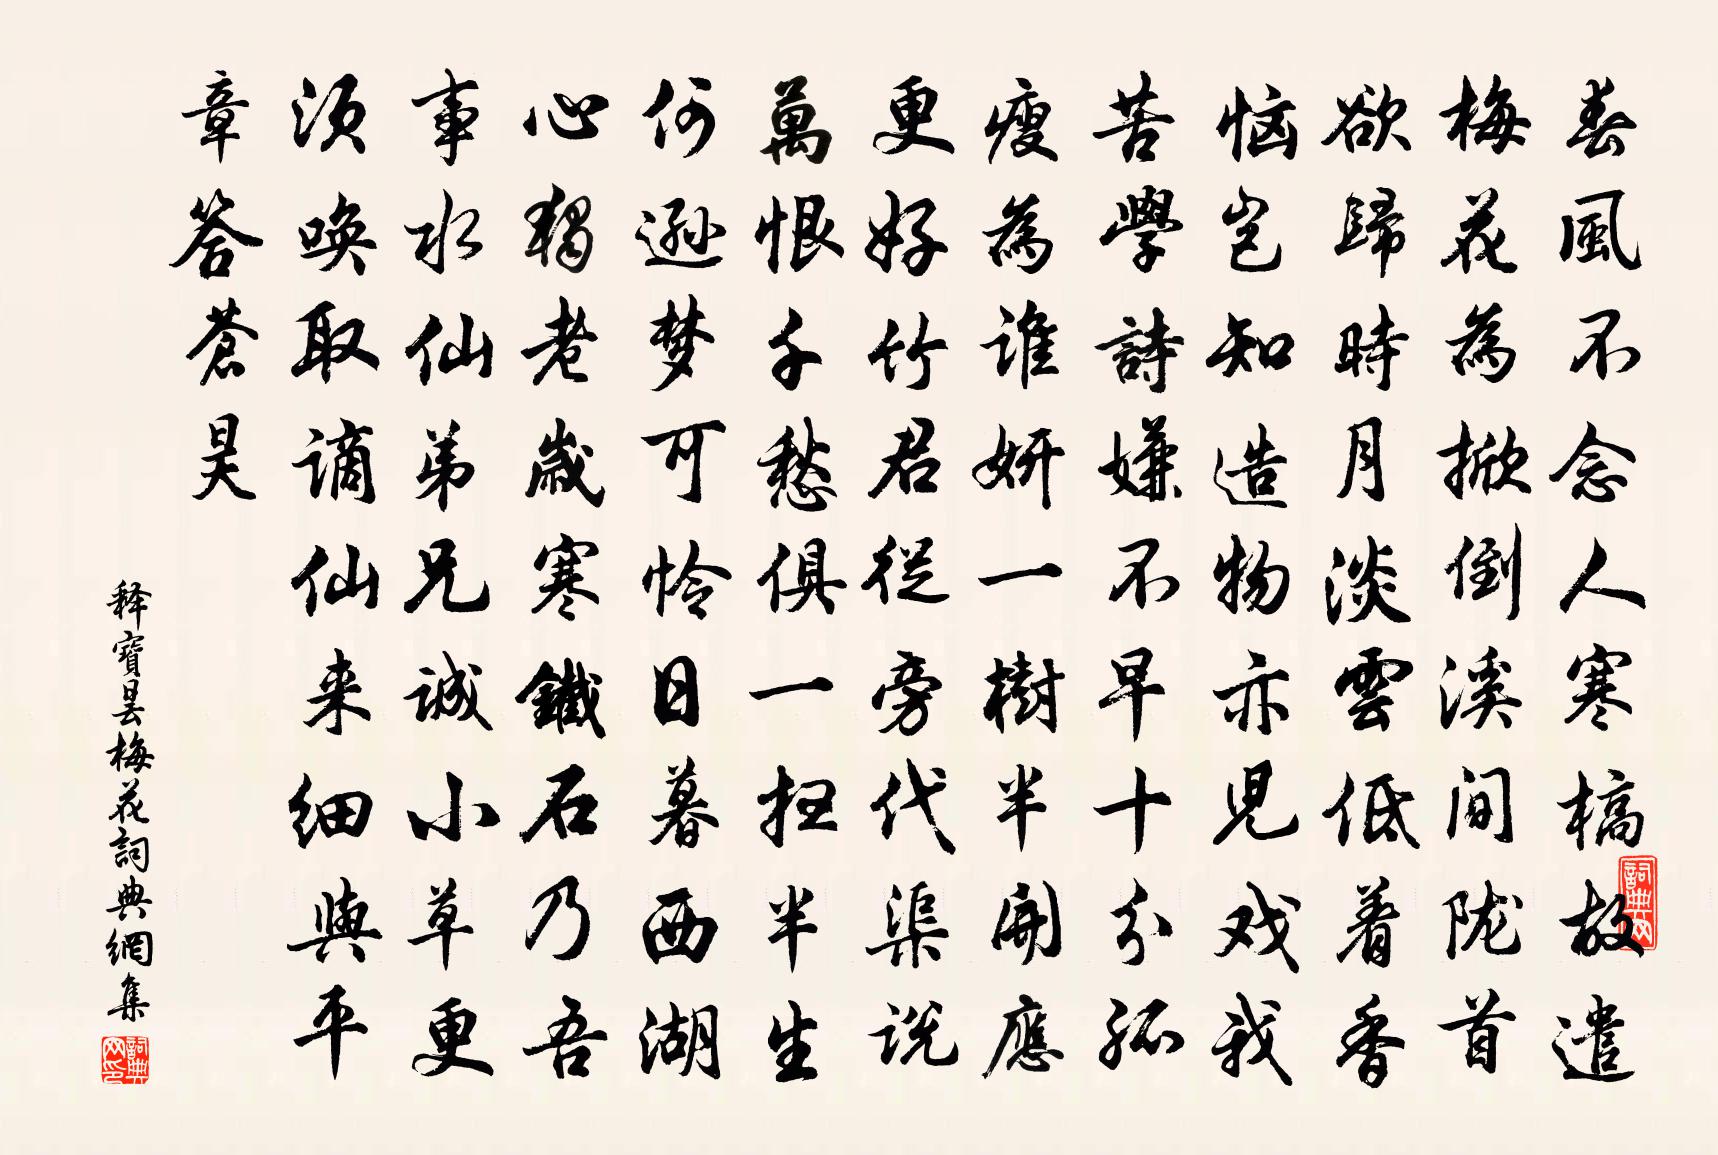 春風不念人寒槁故遣
梅花為掀倒溪间陇首
欲歸時月淡雲低着香
恼岂知造物亦児戏我
苦學詩嫌不早十分孤
瘦為誰妍一樹半開應
更好竹君從旁代渠説
萬恨千愁俱一扫半生
何遜梦可怜日暮西湖
心獨老歲寒鐵石乃吾
事水仙弟兄誠小草更
須唤取謫仙来细與平
章答蒼昊
释寶曇梅花詞典網集
詞典网
詞典网印